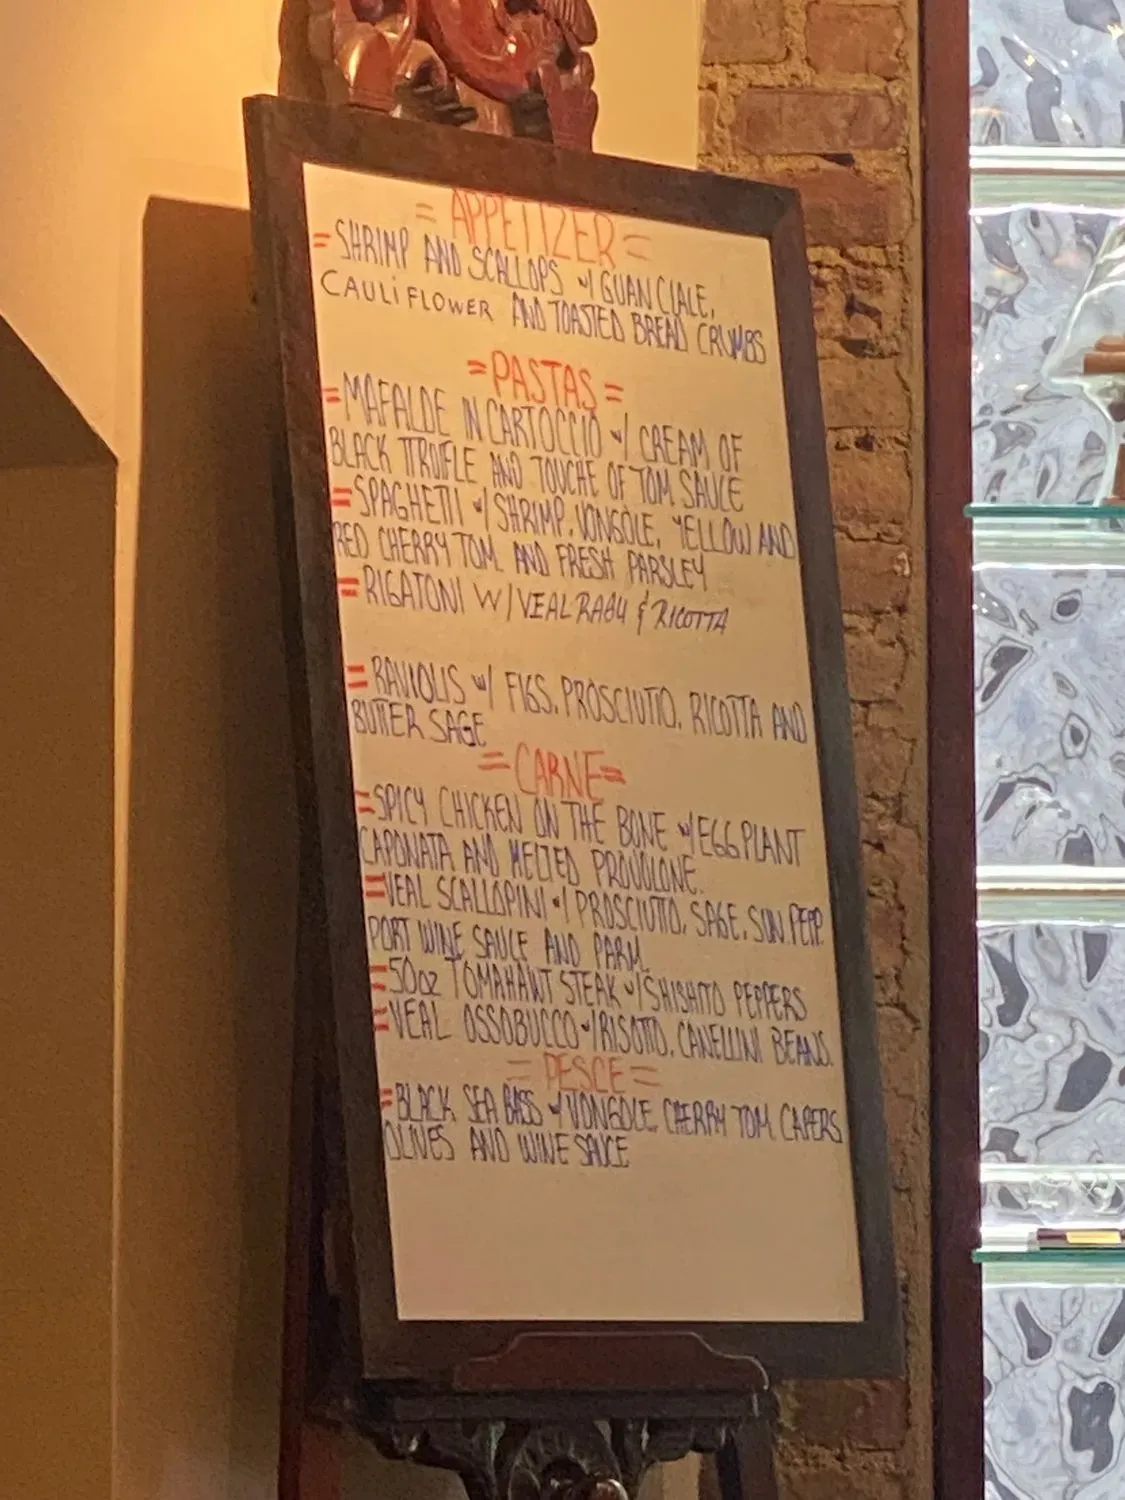 = APPETIZER =
= SHRIMP AND SCALLOPS w/ GUANCIALE,
CAULIFLOWER AND TOASTED BREAD CRUMBS
= PASTAS =
= MAFALDE IN CARTOCCIO w/ CREAM OF
BLACK TTRUFLE AND TOUCHE OF TOM. SAUCE
= SPAGHETTI w/ SHRIMP, VONGOLE, YELLOW AND
RED CHERRY TOM. AND FRESH PARSLEY
= RIGATONI W/ VEAL RAGU & RICOTTA
= RAVIOLIS w/ FIGS, PROSCIUTTO, RICOTTA AND
BUTTER SAGE
= CARNE =
= SPICY CHICKEN ON THE BONE w/ EGGPLANT
CAPONATA AND MELTED PROVOLONE.
= VEAL SCALLOPINI w/ PROSCIUTTO, SAGE, SUN. PEPP.
PORT WINE SAUCE AND PARM.
= 50oz TOMAHAWT STEAK w/ SHISHITO PEPPERS
= VEAL OSSOBUCCO w/ RISOTTO, CANELLINI BEANS.
= PESCE =
= BLACK SEA BASS w/ VONGOLE, CHERRY TOM. CAPERS
OLIVES AND WINE SAUCE